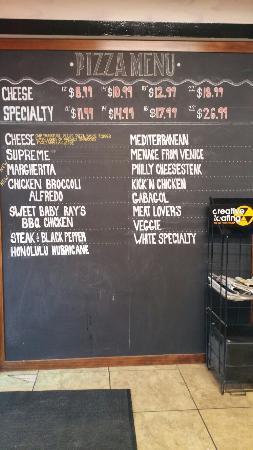 PIZZA MENU
CHEESE 12" $8.99 14" $10.99 16" $12.99 22" $18.99
SPECIALTY 12" $11.99 14" $14.99 16" $17.99 22" $26.99
CHEESE
SUPREME
MARGHERITA
CHICKEN BROCCOLI
ALFREDO
SWEET BABY RAY'S
BBQ CHICKEN
STEAK & BLACK PEPPER
HONOLULU HURRICANE
MEDITERRANEAN
MENACE FROM VENICE
PHILLY CHEESESTEAK
KICK'N CHICKEN
GABAGOL
MEAT LOVERS
VEGGIE
WHITE SPECIALTY
creative
loafing